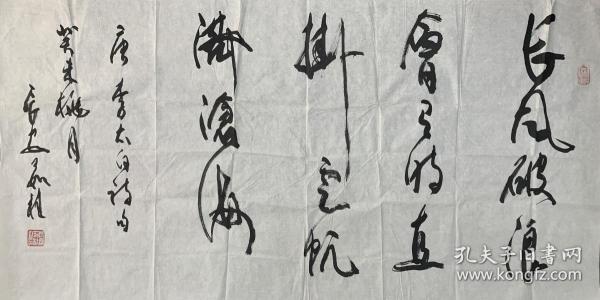 长风破浪
会有时直
挂云帆
济沧海
唐李太白诗句
癸未桃月
孔夫子旧书网
www.kongfz.com